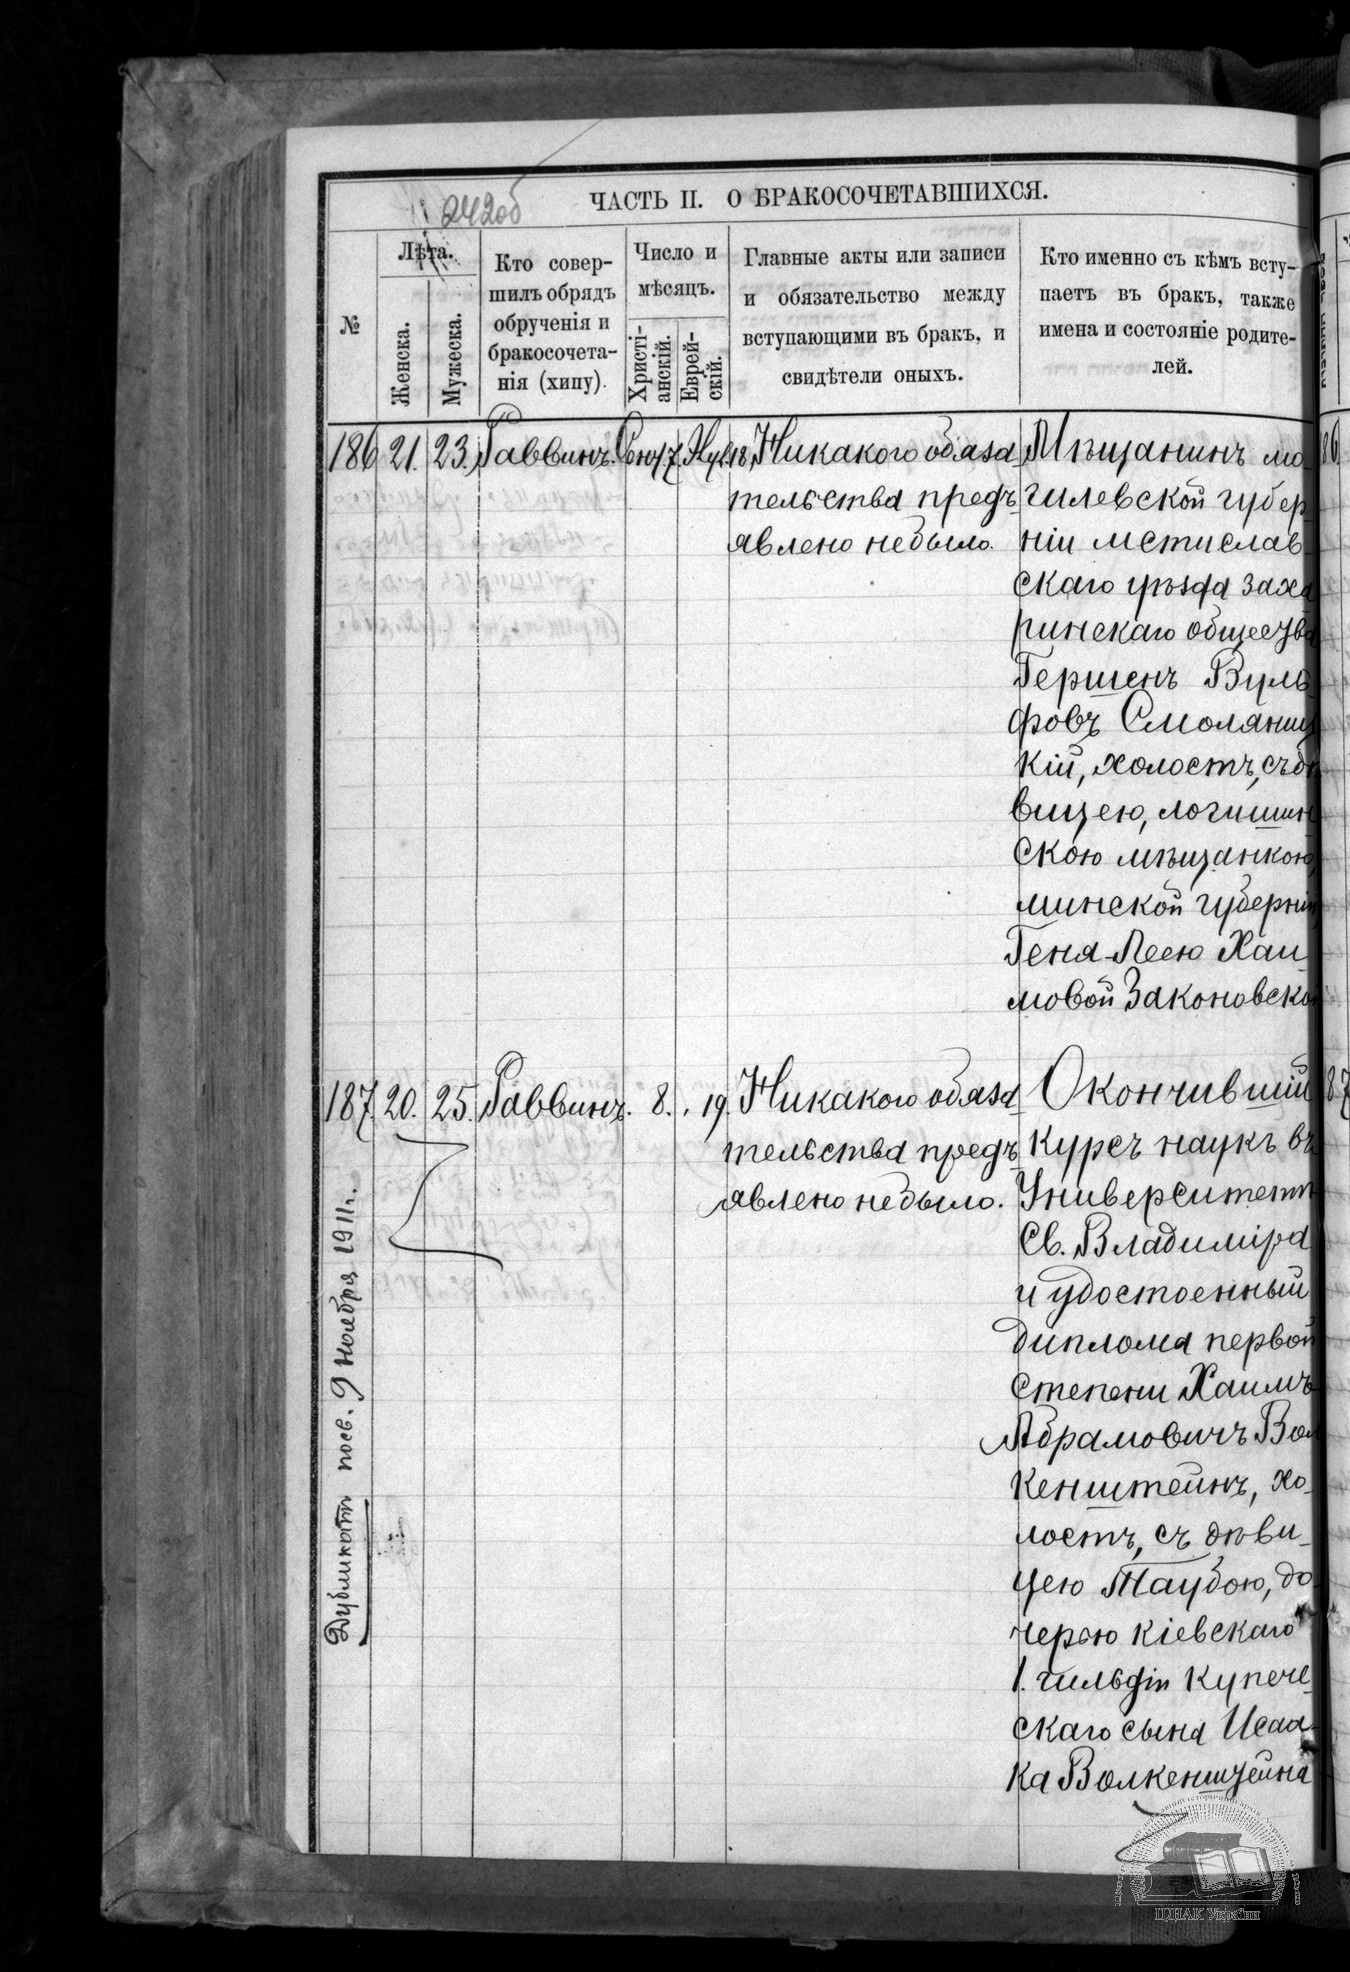 242об
ЧАСТЬ II. О БРАКОСОЧЕТАВШИХСЯ.
№
Лѣта.
Женска.
Мужеска.
Кто совер-
шилъ обрядъ
обрученія и
бракосочета-
нія (хипу).
Число и
мѣсяцъ.
Христі-
анскій.
Еврей-
скій.
Главные акты или записи
и обязательство между
вступающими въ бракъ, и
свидѣтели оныхъ.
Кто именно съ кѣмъ всту-
паетъ въ бракъ, также
имена и состояніе родите-
лей.
186 21. 23. Раввинъ. 18, Никакого обяза
тельства предъ
явлено не было.
Мѣщанинъ мо-
гилевской губер
ніи мстислав
скаго уѣзда заха
ринскаго общества
Гершенъ Вуль
фовъ Смоляниц
кій, холостъ, съ дѣ
вицею, логишин
скою мѣщанкою,
минской губерніи,
Геня-Леею Хаи
мовой Законовской
187. 20. 25. Раввинъ. 8. 19. Никакого обяза
тельства предъ
явлено не было.
Окончивший
курсъ наукъ въ
Университетѣ
Св. Владиміра
и удостоенный
диплома первой
степени Хаимъ
Абрамовичъ Вол
кенштейнъ, хо-
лостъ, съ дѣви-
цею Таубою, до-
черью кіевскаго
1. гильдіи купече-
скаго сына Исаа-
ка Волкенштейна
Дубликатъ посв. 9 Ноября 1911 г.
86
87
ЦДІАК України